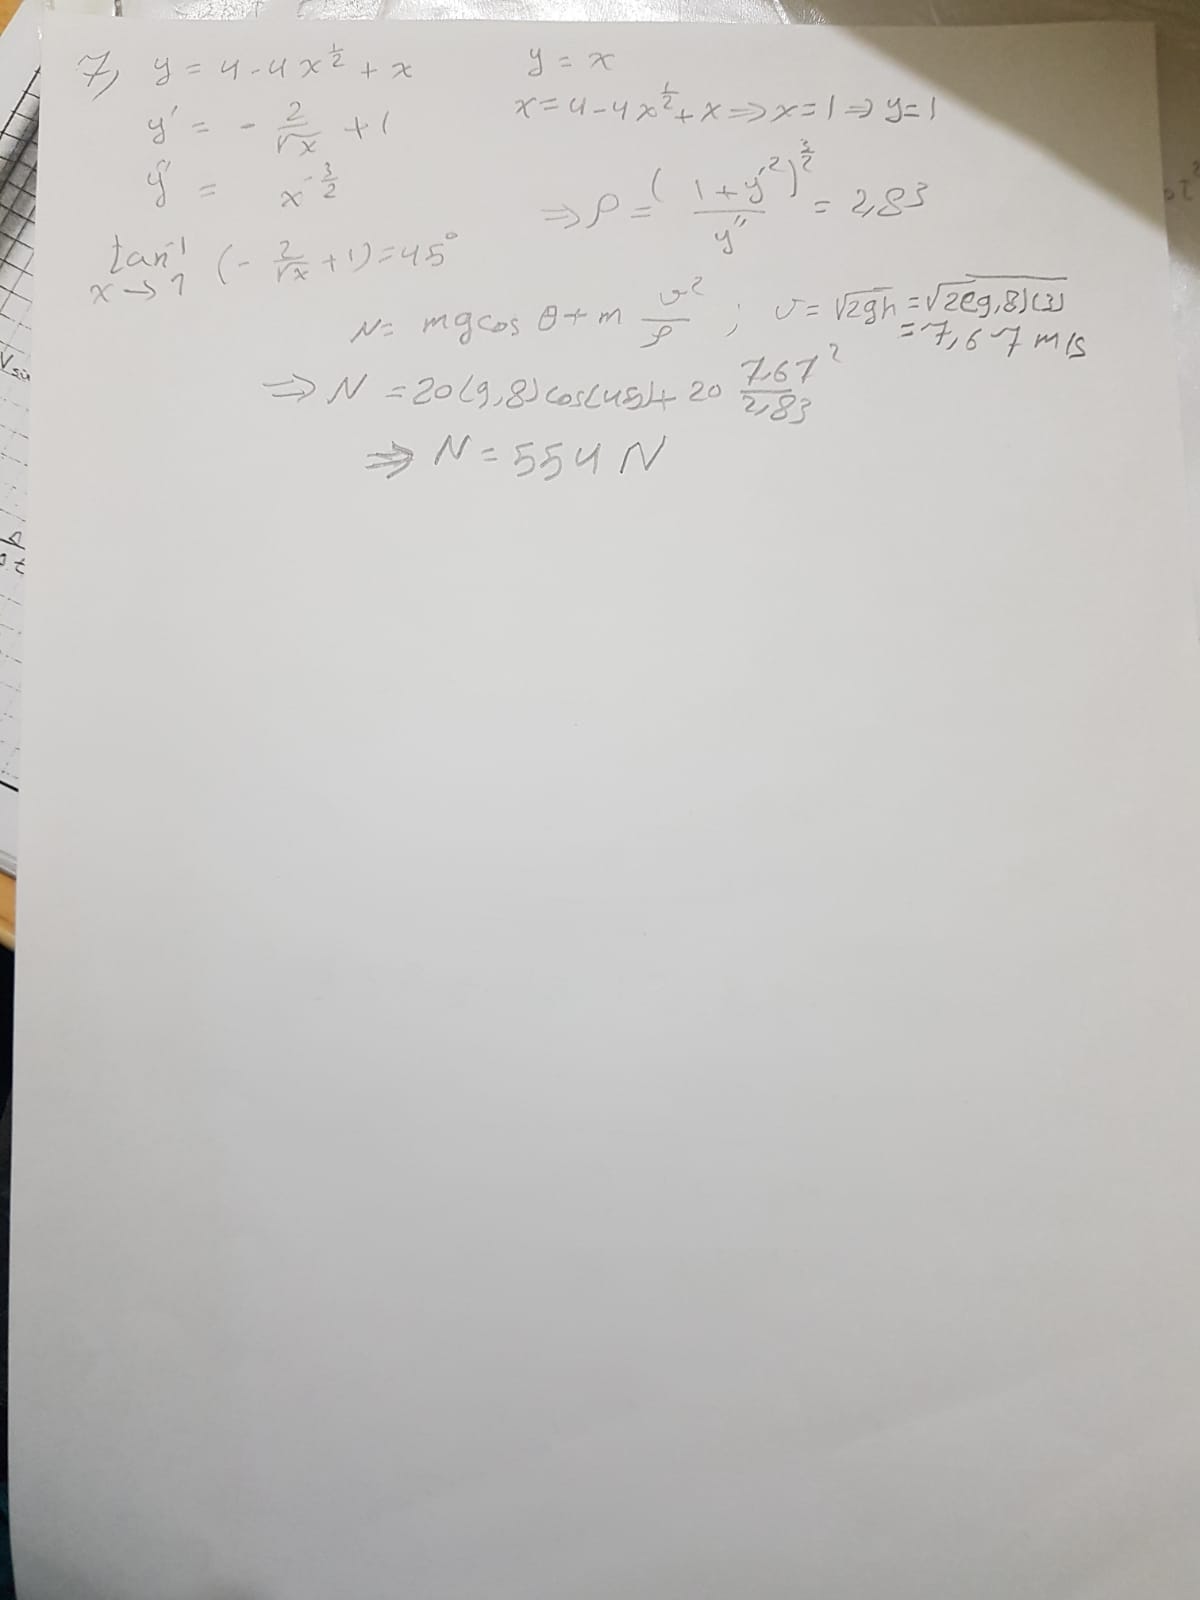 7, y = 4 - 4x^{1/2} + x
y' = - 2/√x + 1
y'' = x^{-3/2}
tan^{-1} (- 2/√x + 1) = 45°
x → 1
y = x
x = 4 - 4x^{1/2} + x ⇒ x = 1 ⇒ y = 1
⇒ ρ = (1 + y'^2)^{3/2} / y'' = 2,83
N = mg cos θ + m v^2/ρ ; v = √2gh = √2(9,8)(3)
= 7,67 m/s
⇒ N = 20(9,8)cos(45) + 20 7,67^2/2,83
⇒ N = 554 N